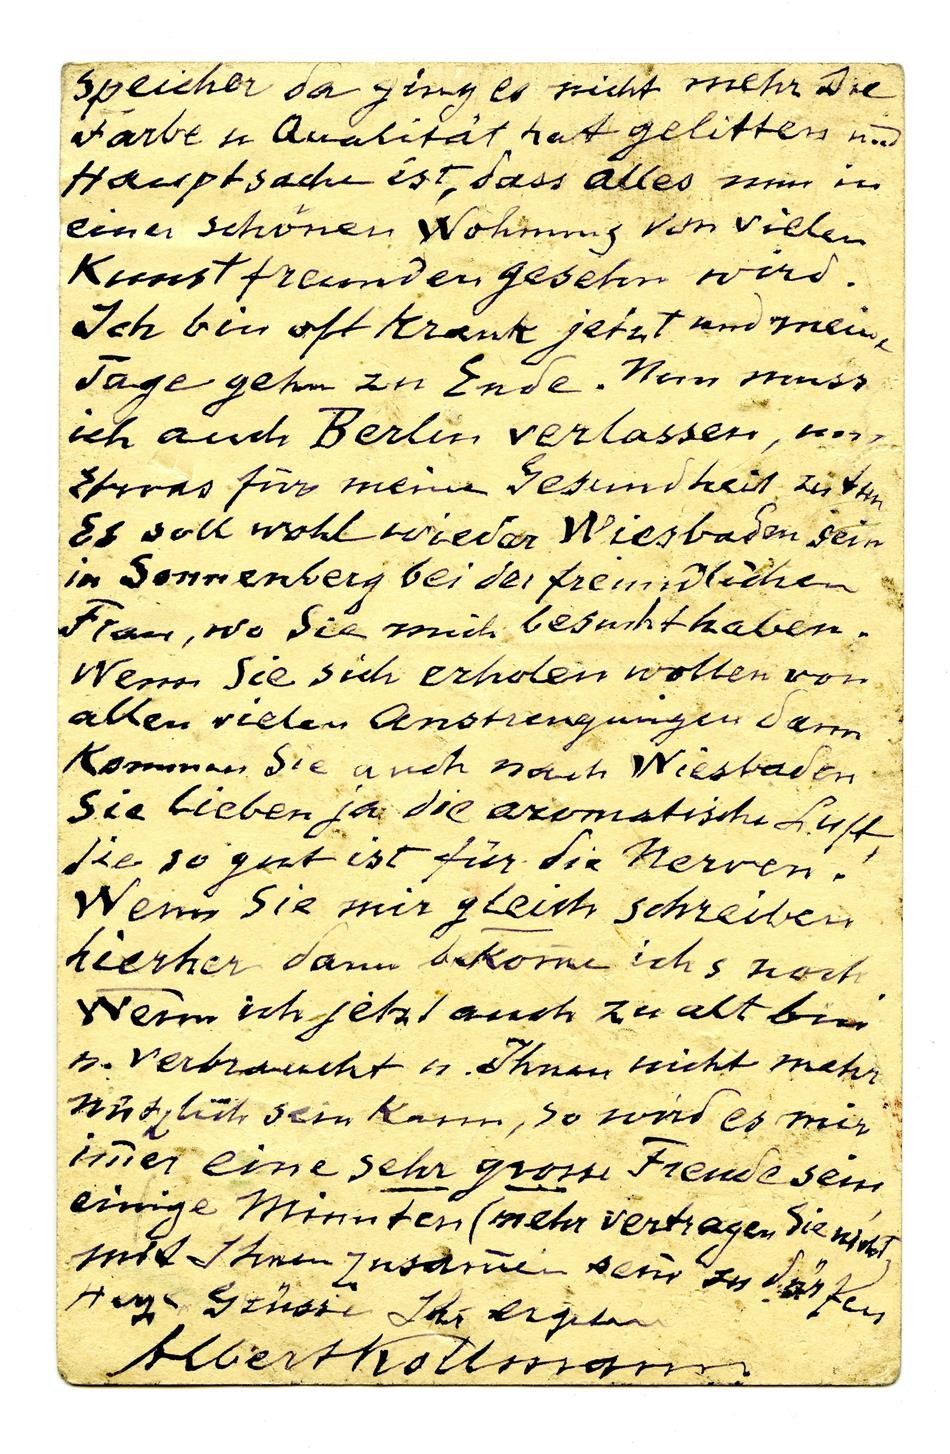 Speicher da ging es nicht mehr Die
Farbe u Qualität hat gelitten und
Hauptsache ist, dass alles nun in
einer schönen Wohnung von vielen
Kunstfreunden gesehn wird.
Ich bin oft krank jetzt und meine
Tage gehn zu Ende. Nun muss
ich auch Berlin verlassen, um
Etwas für meine Gesundheit zu tun
Es soll wohl wieder Wiesbaden sein
in Sonnenberg bei der freundlichen
Frau, wo Sie mich besucht haben.
Wenn Sie sich erholen wollen von
allen vielen Anstrengungen dann
Kommen Sie auch nach Wiesbaden
Sie lieben ja die aromatische Luft,
die so gut ist für die Nerven!
Wenn Sie mir gleich schreiben
hierher dann bekom̄e ich s noch
Wenn ich jetzt auch zu alt bin
u. verbraucht u. Ihnen nicht mehr
nützlich sein kann, so wird es mir
im̄er eine sehr grosse Freude sein
einige Minuten (mehr vertragen Sie nicht)
mit Ihnen zusam̄en sein zu dürfen
Herz Grüsse Ihr ergeben
Albert Kollmann